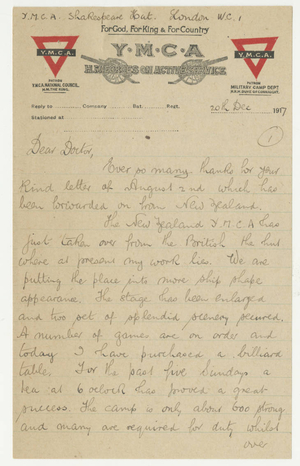 Y.M.C.A. Shakespeare Hut. London W.C.1
For God, For King & For Country
Y.M.C.A
Y·M·C·A
Y.M.C.A
H.M. FORCES ON ACTIVE SERVICE
PATRON
Y.M.C.A. NATIONAL COUNCIL,
H.M. THE KING.
PATRON
MILITARY CAMP DEPT
H.R.H. DUKE OF CONNAUGHT.
Reply to Company Bat. Regt. 20th Dec 1917
Stationed at
1
Dear Doctor,
Ever so many thanks for your
kind letter of August 2nd which has
been forwarded on from New Zealand.
The New Zealand Y.M.C.A has
just taken over from the British the hut
where at present my work lies. We are
putting the place into more ship shape
appearance. The stage has been enlarged
and two set of splendid scenery secured.
A number of games are on order and
today I have purchased a billiard
table. For the past five Sundays a
tea at 6 oclock has proved a great
success. The camp is only about 600 strong
and many are required for duty whilst
over